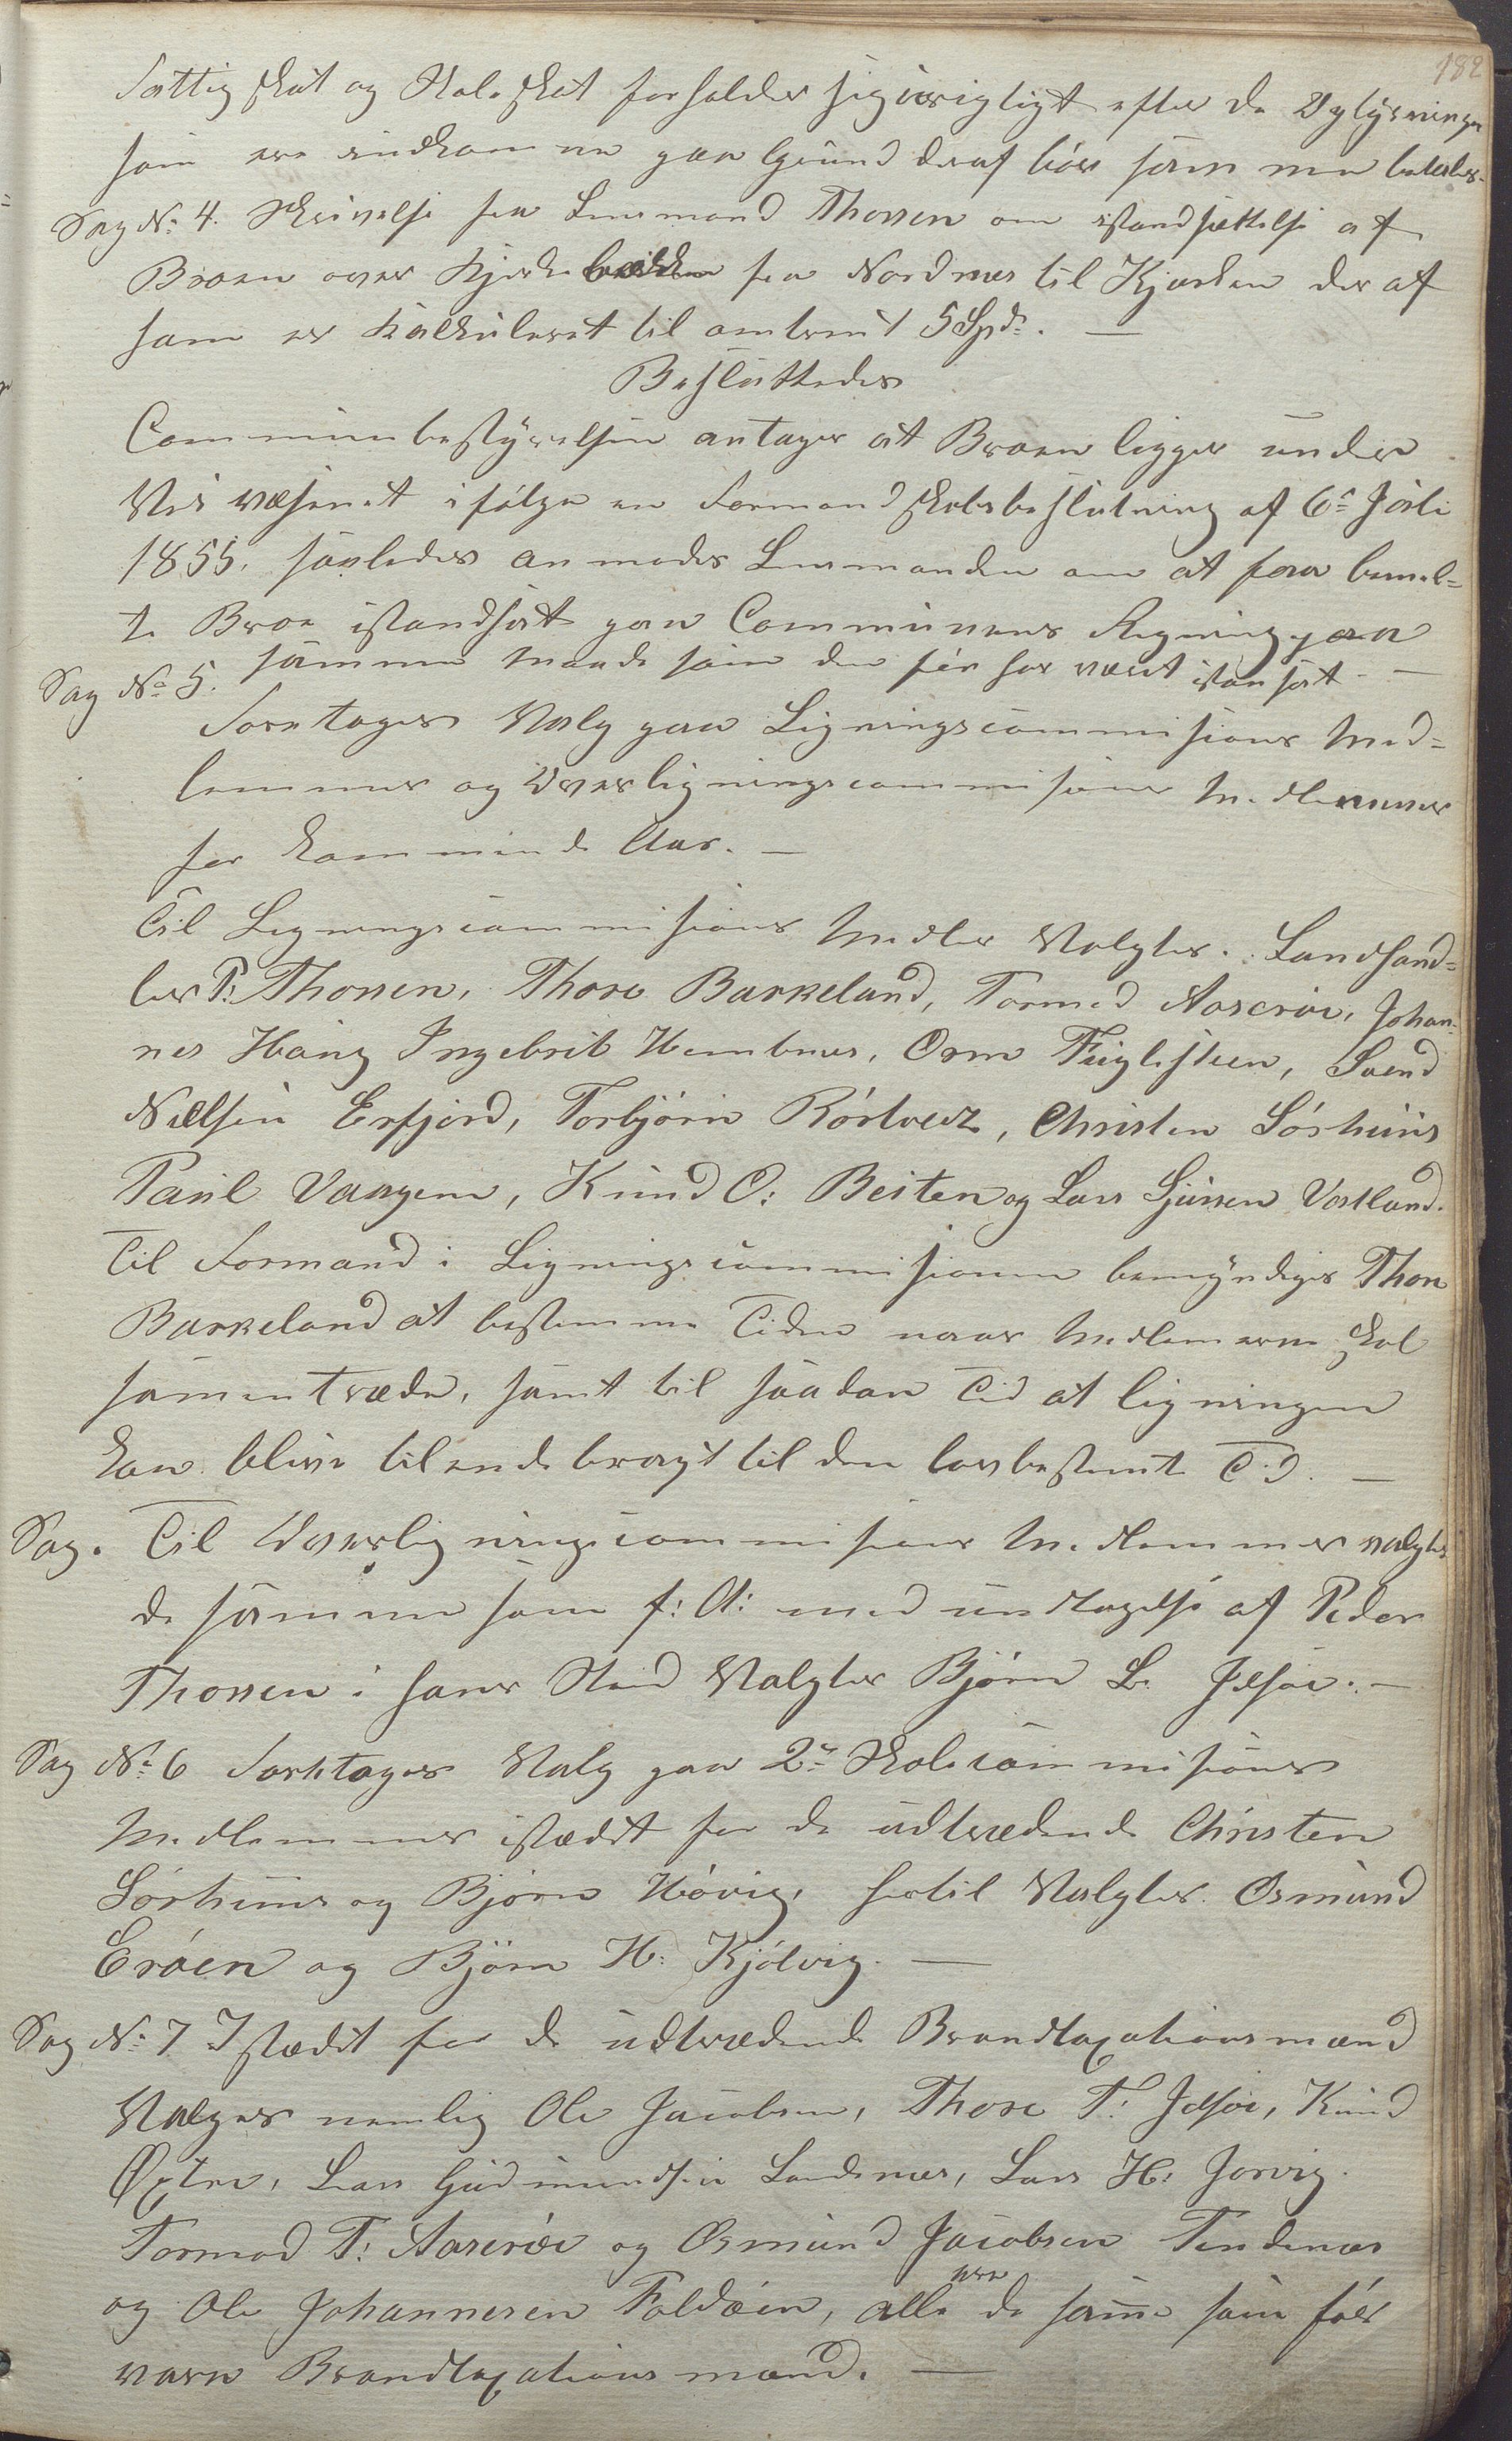 182
Fattigskat og Skoleskat forholder sig urigtigt efter de Oplysninger
som ere indkomne paa Grund deraf bør som men betales.
Sag No. 4. Skrivelse fra Lensmand Thorsen om istandsættelse af
Broen over Kjerke fra Nordnes til Kjerken der af
ham er kalkuleret til omtrent 5 Spd. —
Besluttedes
Communbestyrelsen antager at Broen ligger under
Veivæsenet ifølge en Formandskabsbeslutning af 6te Juli
1855. saaledes anmodes Lensmanden om at faa bemel-
te Broe istandsat paa Communens Regning paa
samme Maade som den før har været istansat. —
Sag No. 5.
Foretages Valg paa Ligningscommisions Med-
lemmer og Overligningscommisions Medlemmer
for kommende Aar. —
Til Ligningscommisions Medler Valgtes. Landhand-
ler P: Thorsen, Thore Barkeland, Tormod Aaserøe, Johan-
nes Haug Ingebrit Hembnes, Orm Fuglesteen, Svend
Nielsen Erfjord, Torbjörn Rörtveit, Christen Sörhuus
Paul Vaagene, Knud O: Beiten og Lars Sjursen Vostland.
Til Formand i Ligningscommisionen bemyndiges Thore
Barkeland at bestemme Tiden naar Medlemerne skal
samentræde, samt til saadan Tid at ligningen
kan blive tilendebragt til den lovbestemte Tid. —
Sag. Til Overligningscommisions Medlemmer valgtes
de samme som f: A: med undtagelse af Peder
Thorsen i hans Sted Valgtes Björn L. Jelsøe. —
Sag No. 6 Foretages Valg paa 2de Skolecommisions
Medlemmer istædet for de udtrædende Christen
Sörhuus og Björn Høvig, hertil Valgtes Osmund
Erøen og Björn H: Kjölvig. —
Sag No. 7 Istædet for de udtrædende Brandtaxationsmænd
Vælges nemlig Ole Jacobsen, Thore T: Jelsøe, Knud
Øxtre, Lars Gudmundsen Landsnes, Lars H: Jorvig.
Tormod T: Aaserøe og Osmund Jacobsen Tindenes
og Ole Johannesen Foldøen, alle ere de samme som før
vare Brandtaxationsmænd. —